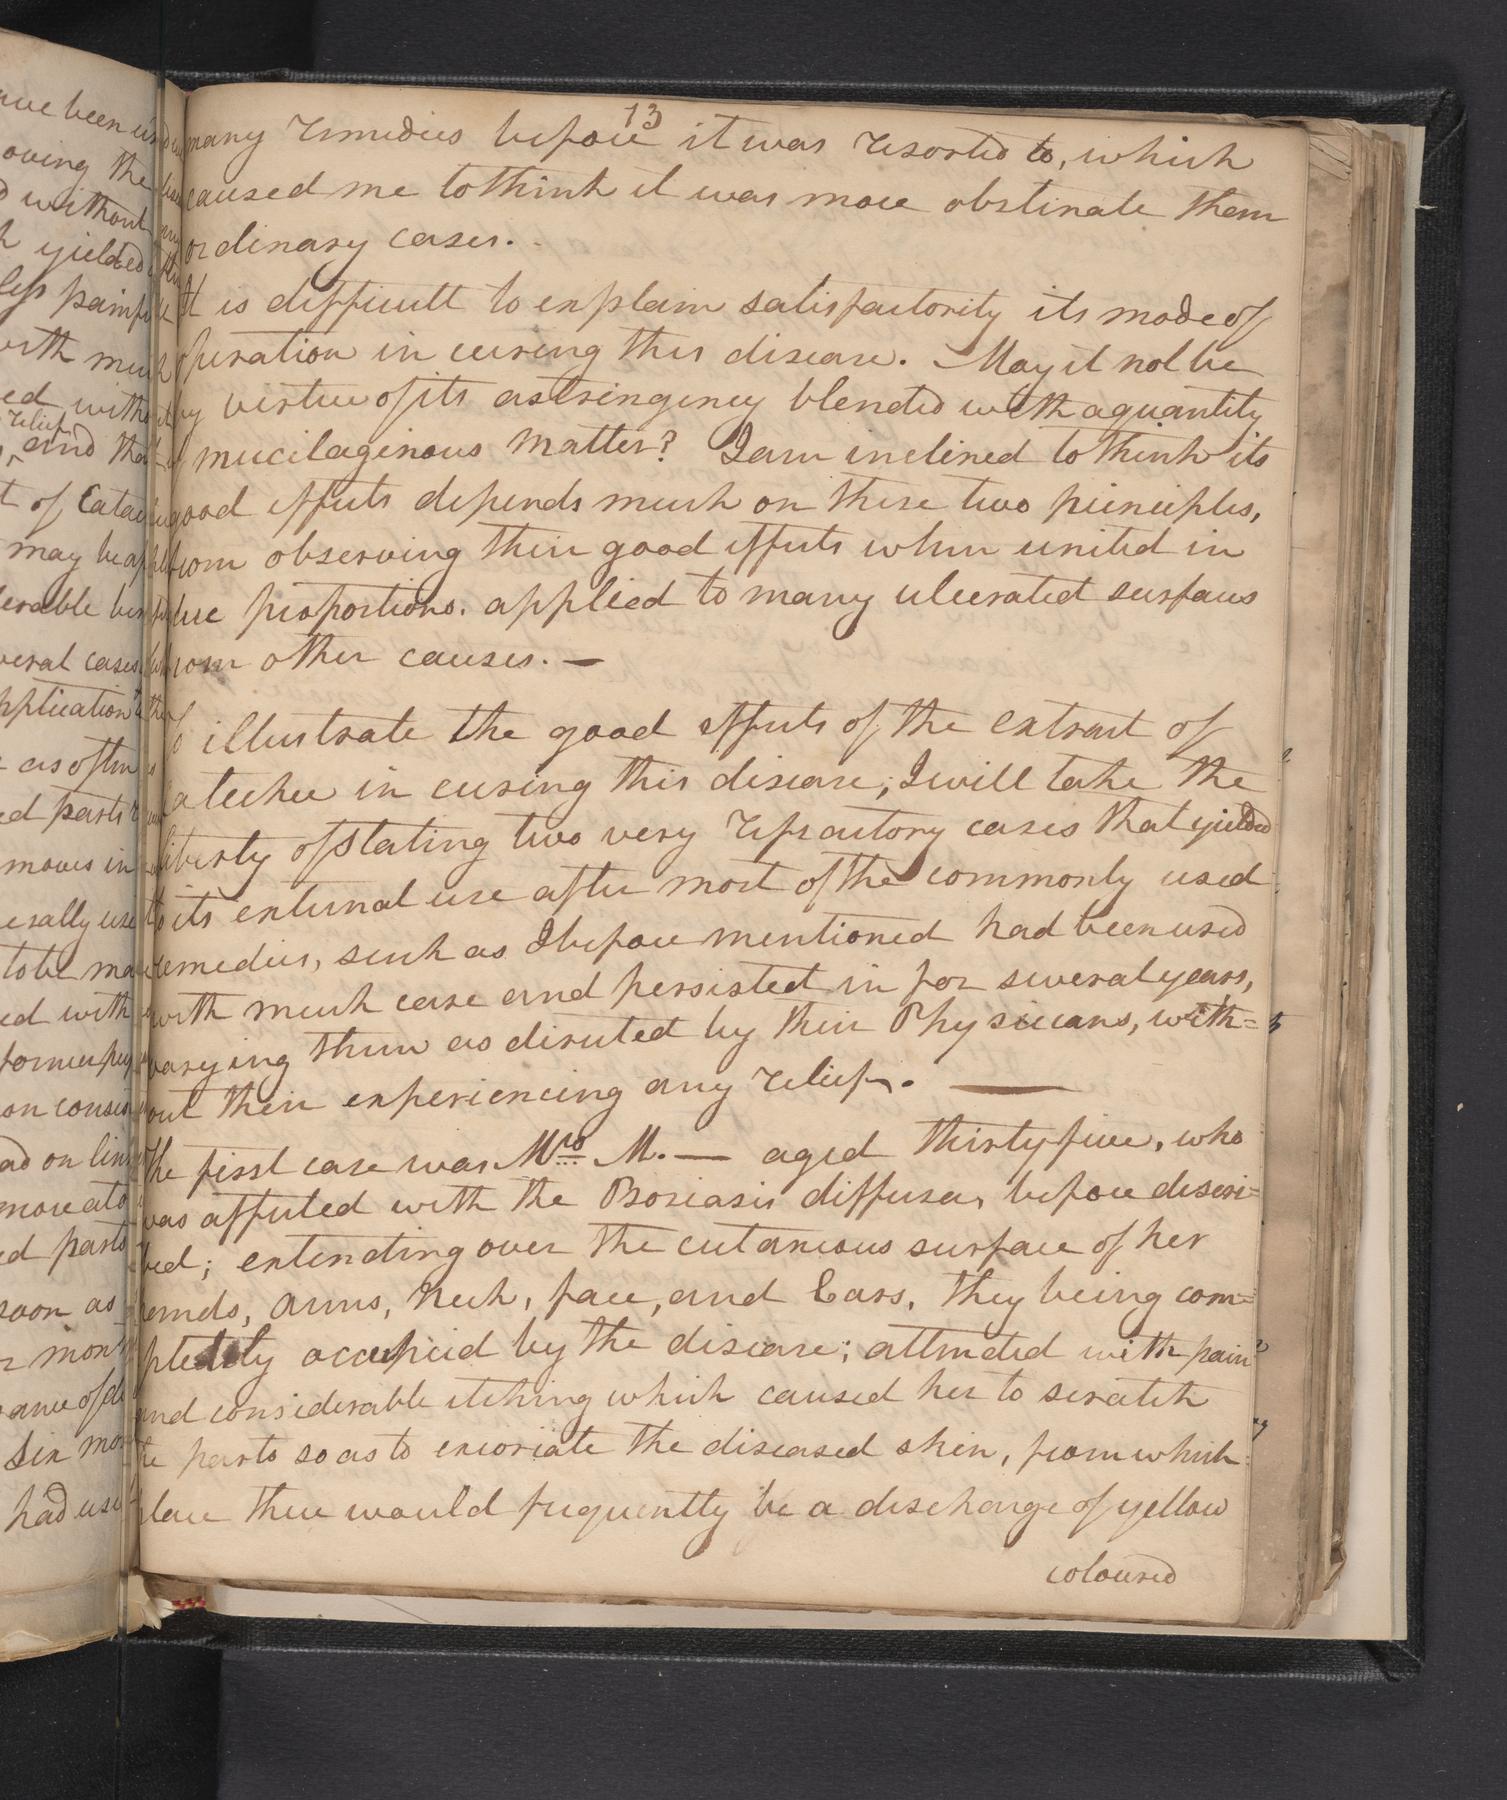 13
many remedies before it was resorted to, which
caused me to think it was more obstinate than
ordinary cases.
It is difficult to explain satisfactority its mode of
operation in curing this disease. May it not be
by virtue of its astringency blended with a quantity
of mucilaginous matter? I am inclined to think its
good effects depends much on these two principles,
from observing their good effects when united in
due proportions. applied to many ulcerated surfaces
from other causes. —
To illustrate the good effects of the extract of
Catechu in curing this disease, I will take the
liberty of stating two very refractory cases that yielded
to its external use after most of the commonly used
remedies, such as I before mentioned had been used
with much care and persisted in for several years,
varying them as directed by their Physicians, with=
out their experiencing any relief. —
The first case was Mrs M. — aged thirty five, who
was affected with the Psoriasis diffusa, before descri=
bed; extending over the cutaneous surface of her
hands, arms, neck, face, and Ears, they being com=
pletely occupied by the disease; attended with pain
and considerable itching which caused her to scratch
the parts so as to excoriate the diseased skin, from which
place there would frequently be a discharge of yellow
coloured